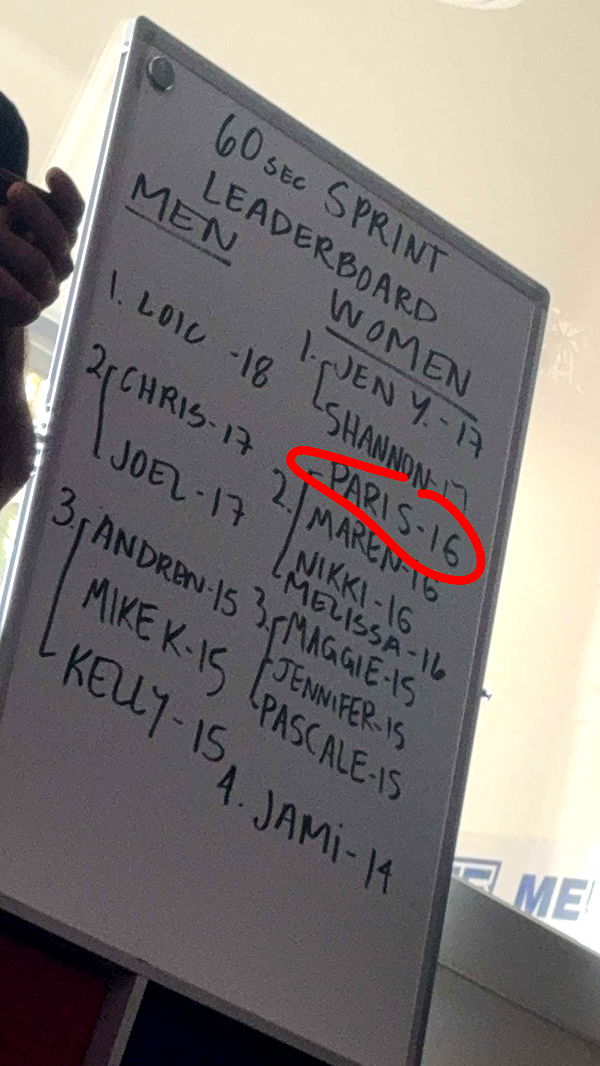 60 SEC SPRINT
LEADERBOARD
MEN
1. LOIC - 18
2. CHRIS - 17
JOEL - 17
3. ANDREW - 15
MIKE K - 15
KELLY - 15
WOMEN
1. JEN Y. - 17
SHANNON - 17
2. PARIS - 16
MAREN - 16
NIKKI - 16
MELISSA - 16
3. MAGGIE - 15
JENNIFER - 15
PASCALE - 15
4. JAMi - 14
ME